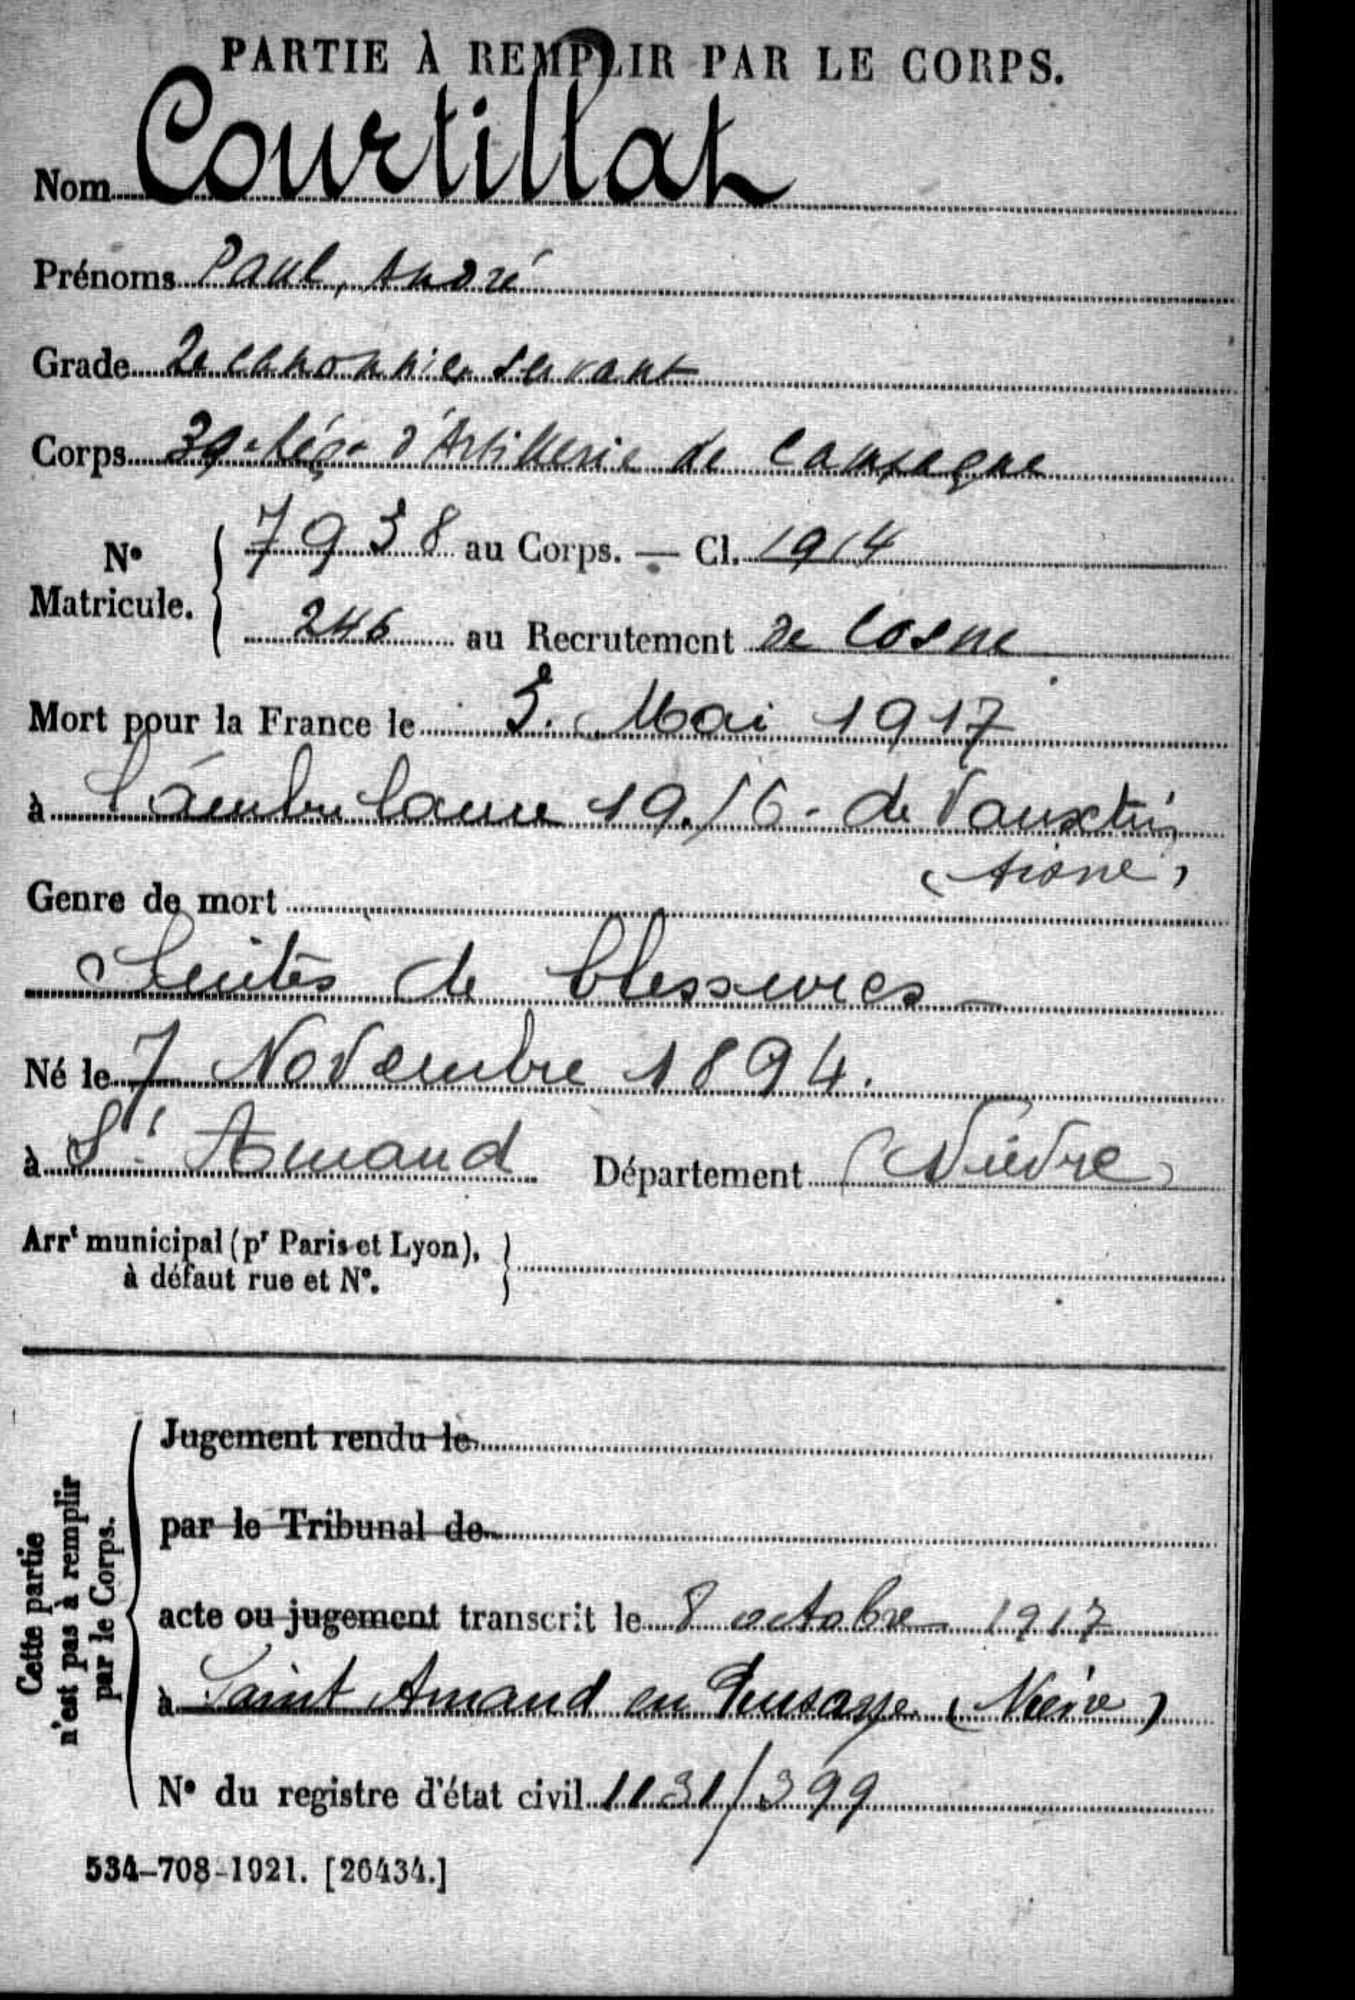 PARTIE À REMPLIR PAR LE CORPS.
Nom Courtillat
Prénoms Paul, André
Grade 2e canonnier servant
Corps 39e Rég. d'Artillerie de Campagne
No Matricule. { 7938 au Corps. — Cl. 1914
246 au Recrutement de Cosne
Mort pour la France le 5 Mai 1917
à l'ambulance 19/6 - de Vauxtin
(Aisne)
Genre de mort
Suites de blessures -
Né le 7 Novembre 1894.
à St Amand Département (Nièvre)
Arrt municipal (pr Paris et Lyon), à défaut rue et No. }
Cette partie n'est pas à remplir par le Corps. {
Jugement rendu le
par le Tribunal de
acte ou jugement transcrit le 8 octobre 1917
à Saint Amand en Puisaye (Nièvre)
No du registre d'état civil 1131/399
534-708-1921. [26434.]